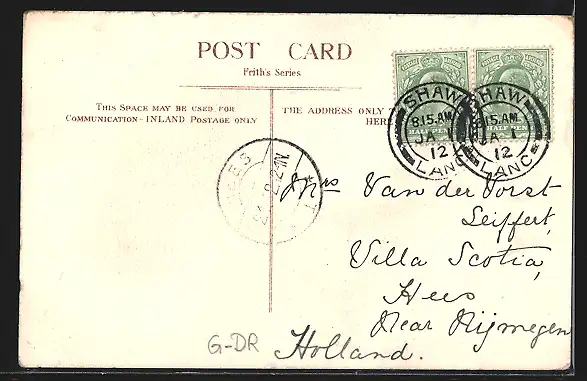 POST CARD
Frith's Series
THIS SPACE MAY BE USED FOR
COMMUNICATION - INLAND POSTAGE ONLY
THE ADDRESS ONLY T
HERE
SHAW
8.15.AM
JA 1
12
LANC
SHAW
8.15.AM
JA 1
12
LANC
HALF PEN
HALF PEN
HEES
Mrs Van der Vorst
Seiffert,
Villa Scotia,
Hees
Near Nijmegen
Holland.
G-DR